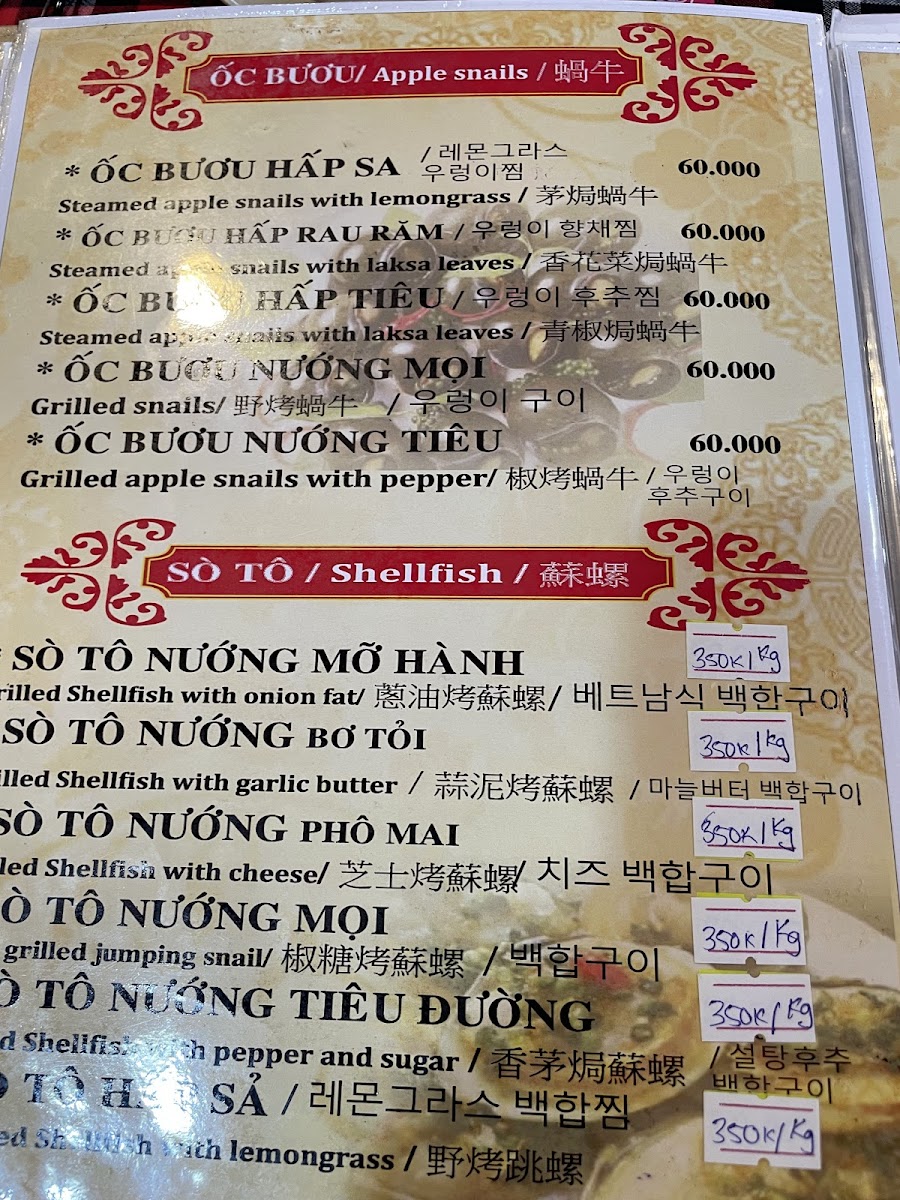 ỐC BƯƠU/ Apple snails / 蝸牛
* ỐC BƯƠU HẤP SA / 레몬그라스 우렁이찜 60.000
Steamed apple snails with lemongrass / 茅焗蝸牛
* ỐC BƯƠU HẤP RAU RĂM / 우렁이 향채찜 60.000
Steamed apple snails with laksa leaves / 香花菜焗蝸牛
* ỐC BƯƠU HẤP TIÊU / 우렁이 후추찜 60.000
Steamed apple snails with laksa leaves / 青椒焗蝸牛
* ỐC BƯƠU NƯỚNG MỌI 60.000
Grilled snails/ 野烤蝸牛 / 우렁이 구이
* ỐC BƯƠU NƯỚNG TIÊU 60.000
Grilled apple snails with pepper/ 椒烤蝸牛 / 우렁이 후추구이
SÒ TÔ / Shellfish / 蘇螺
SÒ TÔ NƯỚNG MỠ HÀNH 350K/Kg
rilled Shellfish with onion fat/ 蔥油烤蘇螺/ 베트남식 백합구이
SÒ TÔ NƯỚNG BƠ TỎI 350K/Kg
illed Shellfish with garlic butter / 蒜泥烤蘇螺 / 마늘버터 백합구이
SÒ TÔ NƯỚNG PHÔ MAI 350K/Kg
led Shellfish with cheese/ 芝士烤蘇螺/ 치즈 백합구이
Ò TÔ NƯỚNG MỌI 350K/Kg
grilled jumping snail/ 椒糖烤蘇螺 / 백합구이
Ò TÔ NƯỚNG TIÊU ĐƯỜNG 350K/Kg
d Shellfish with pepper and sugar / 香茅焗蘇螺 / 설탕후추 백합구이
TÔ HẤP SẢ / 레몬그라스 백합찜 350K/Kg
ed Shellfish with lemongrass / 野烤跳螺